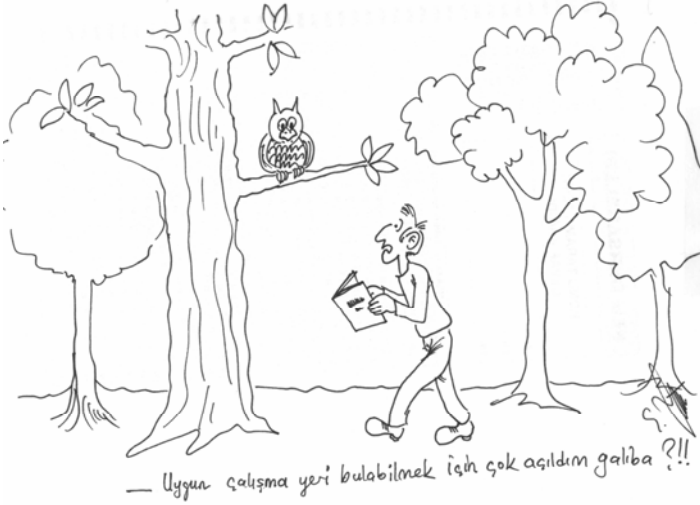 — Uygun çalışma yeri bulabilmek için çok açıldım galiba?!!